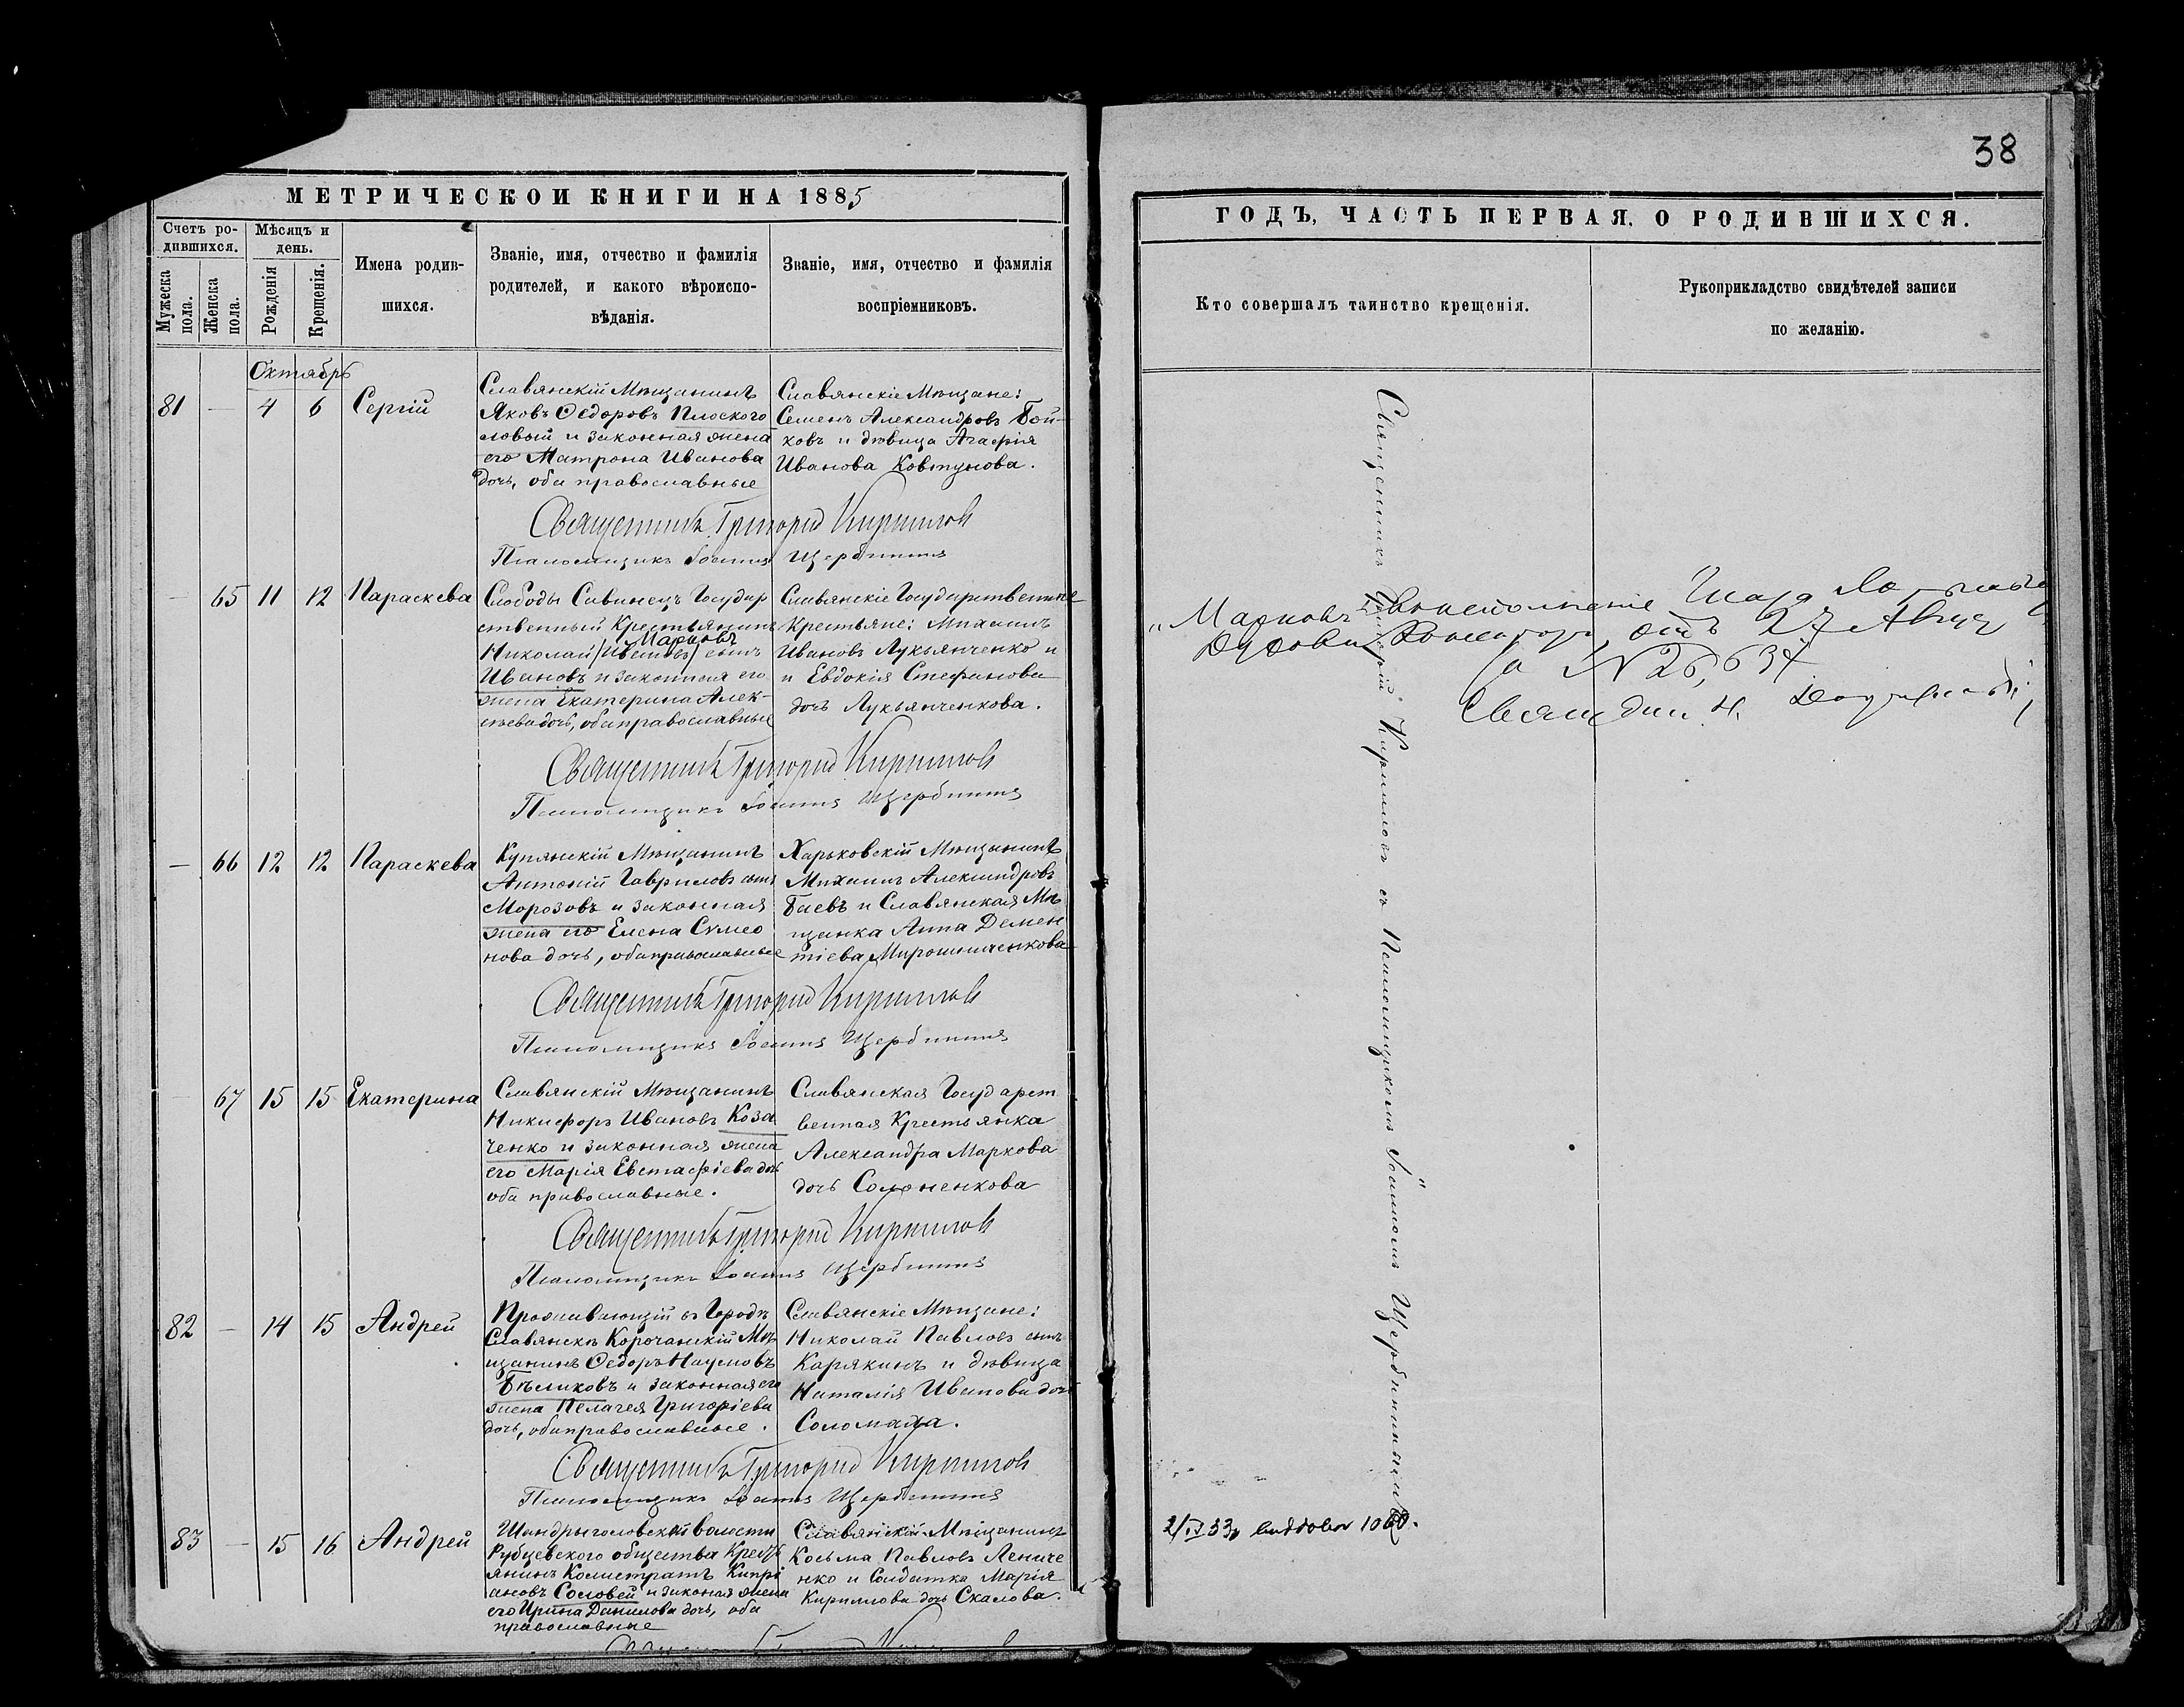 38
МЕТРИЧЕСКОЙ КНИГИ НА 1885
Счетъ ро-
дившихся.
Мѣсяцъ и
день.
Мужеска
пола.
Женска
пола.
Рожденія
Крещенія.
Имена родив-
шихся.
Званіе, имя, отчество и фамилія
родителей, и какого вѣроиспо-
вѣданія.
Званіе, имя, отчество и фамилія
воспріемниковъ.
Октябрь
81 — 4 6 Сергій
Славянскій Мѣщанинъ
Яковъ Ѳедоровъ Плоского
ловый и законная жена
его Матрона Иванова
дочь, оба православные
Славянскіе Мѣщане:
Семенъ Александровъ Бой-
ковъ и дѣвица Агафія
Иванова Ковтунова.
Священникъ Григорій Кириловъ
Псаломщикъ Іоаннъ Щербининъ
— 65 11 12 Параскева
Слободы Савинецъ Государ
ственный Крестьянинъ
Марковъ
Николай /Ивановъ/ сынъ
Ивановъ и законная его
жена Екатерина Алек-
ѣева дочь, оба православные
Славянскіе Государственные
Крестьяне: Михаилъ
Ивановъ Лукьянченко и
и Евдокія Стефанова
дочь Лукьянченкова.
Священникъ Григорій Кириловъ
Псаломщикъ Іоаннъ Щербининъ
— 66 12 12 Параскева
Купянскій Мѣщанинъ
Антоній Гавриловъ сынъ
Морозовъ и законная
жена его Елена Симео
нова дочь, оба православные
Харьковскій Мѣщанинъ
Михаилъ Александровъ
Баевъ и Славянская Мѣ
щанка Анна Демен
тіева Мирошниченкова
Священникъ Григорій Кириловъ
Псаломщикъ Іоаннъ Щербининъ
67 15 15 Екатерина
Славянскій Мѣщанинъ
Никифоръ Ивановъ Коза
ченко и законная жена
его Марія Евстафіева дочь
оба православные.
Славянская Государст
венная Крестьянка
Александра Маркова
дочь Солоненкова
Священникъ Григорій Кириловъ
Псаломщикъ Іоаннъ Щербининъ
82 — 14 15 Андрей
Проживающій въ Городѣ
Славянскѣ Корочанскій Мѣ
щанинъ Ѳедоръ Наумовъ
Бѣликовъ и законная его
жена Пелагея Григоріева
дочь, оба православные.
Славянскіе Мѣщане:
Николай Павловъ сынъ
Карякинъ и дѣвица
Наталія Иванова дочь
Соломаха.
Священникъ Григорій Кириловъ
Псаломщикъ Іоаннъ Щербининъ
83 — 15 16 Андрей
Шандрыголовской волости
Рубцевского общества Кресть
янинъ Калистратъ Кипрі
ановъ Соловей и законая жена
его Ирина Данилова дочь, оба
православные
Славянскій Мѣщанинъ
Косьма Павловъ Лениче
нко и Солдатка Марія
Кириллова дочь Скалова.
ГОДЪ, ЧАСТЬ ПЕРВАЯ, О РОДИВШИХСЯ.
Кто совершалъ таинство крещенія.
Рукоприкладство свидѣтелей записи
по желанію.
Священникъ Григорій Кириловъ съ Псаломщикомъ Іоанномъ Щербининымъ
„Марковъ"
отъ 27 Авгус
за № 26,637